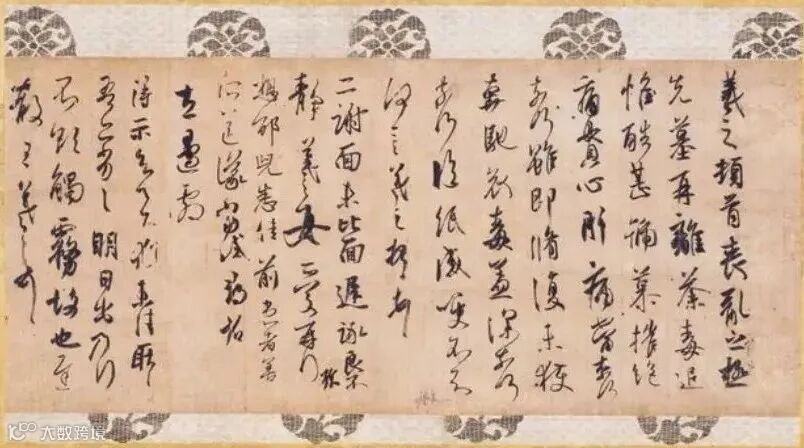 羲之頓首喪亂之極
先墓再離荼毒追
惟酷甚號慕摧絕
痛貫心肝痛當奈何
奈何雖即脩復未獲
奔馳哀毒益深奈何
奈何臨紙感哽不知
何言羲之頓首頓首
二謝面未比面遲詠良
不靜羲之女愛再拜
想邵兒悉佳前患者善
所送議當試尋省
左邊劇
得示知足下猶未佳耿耿
吾亦劣劣明日出乃行
不欲觸霧故也遲
散王羲之頓首
大数跨境